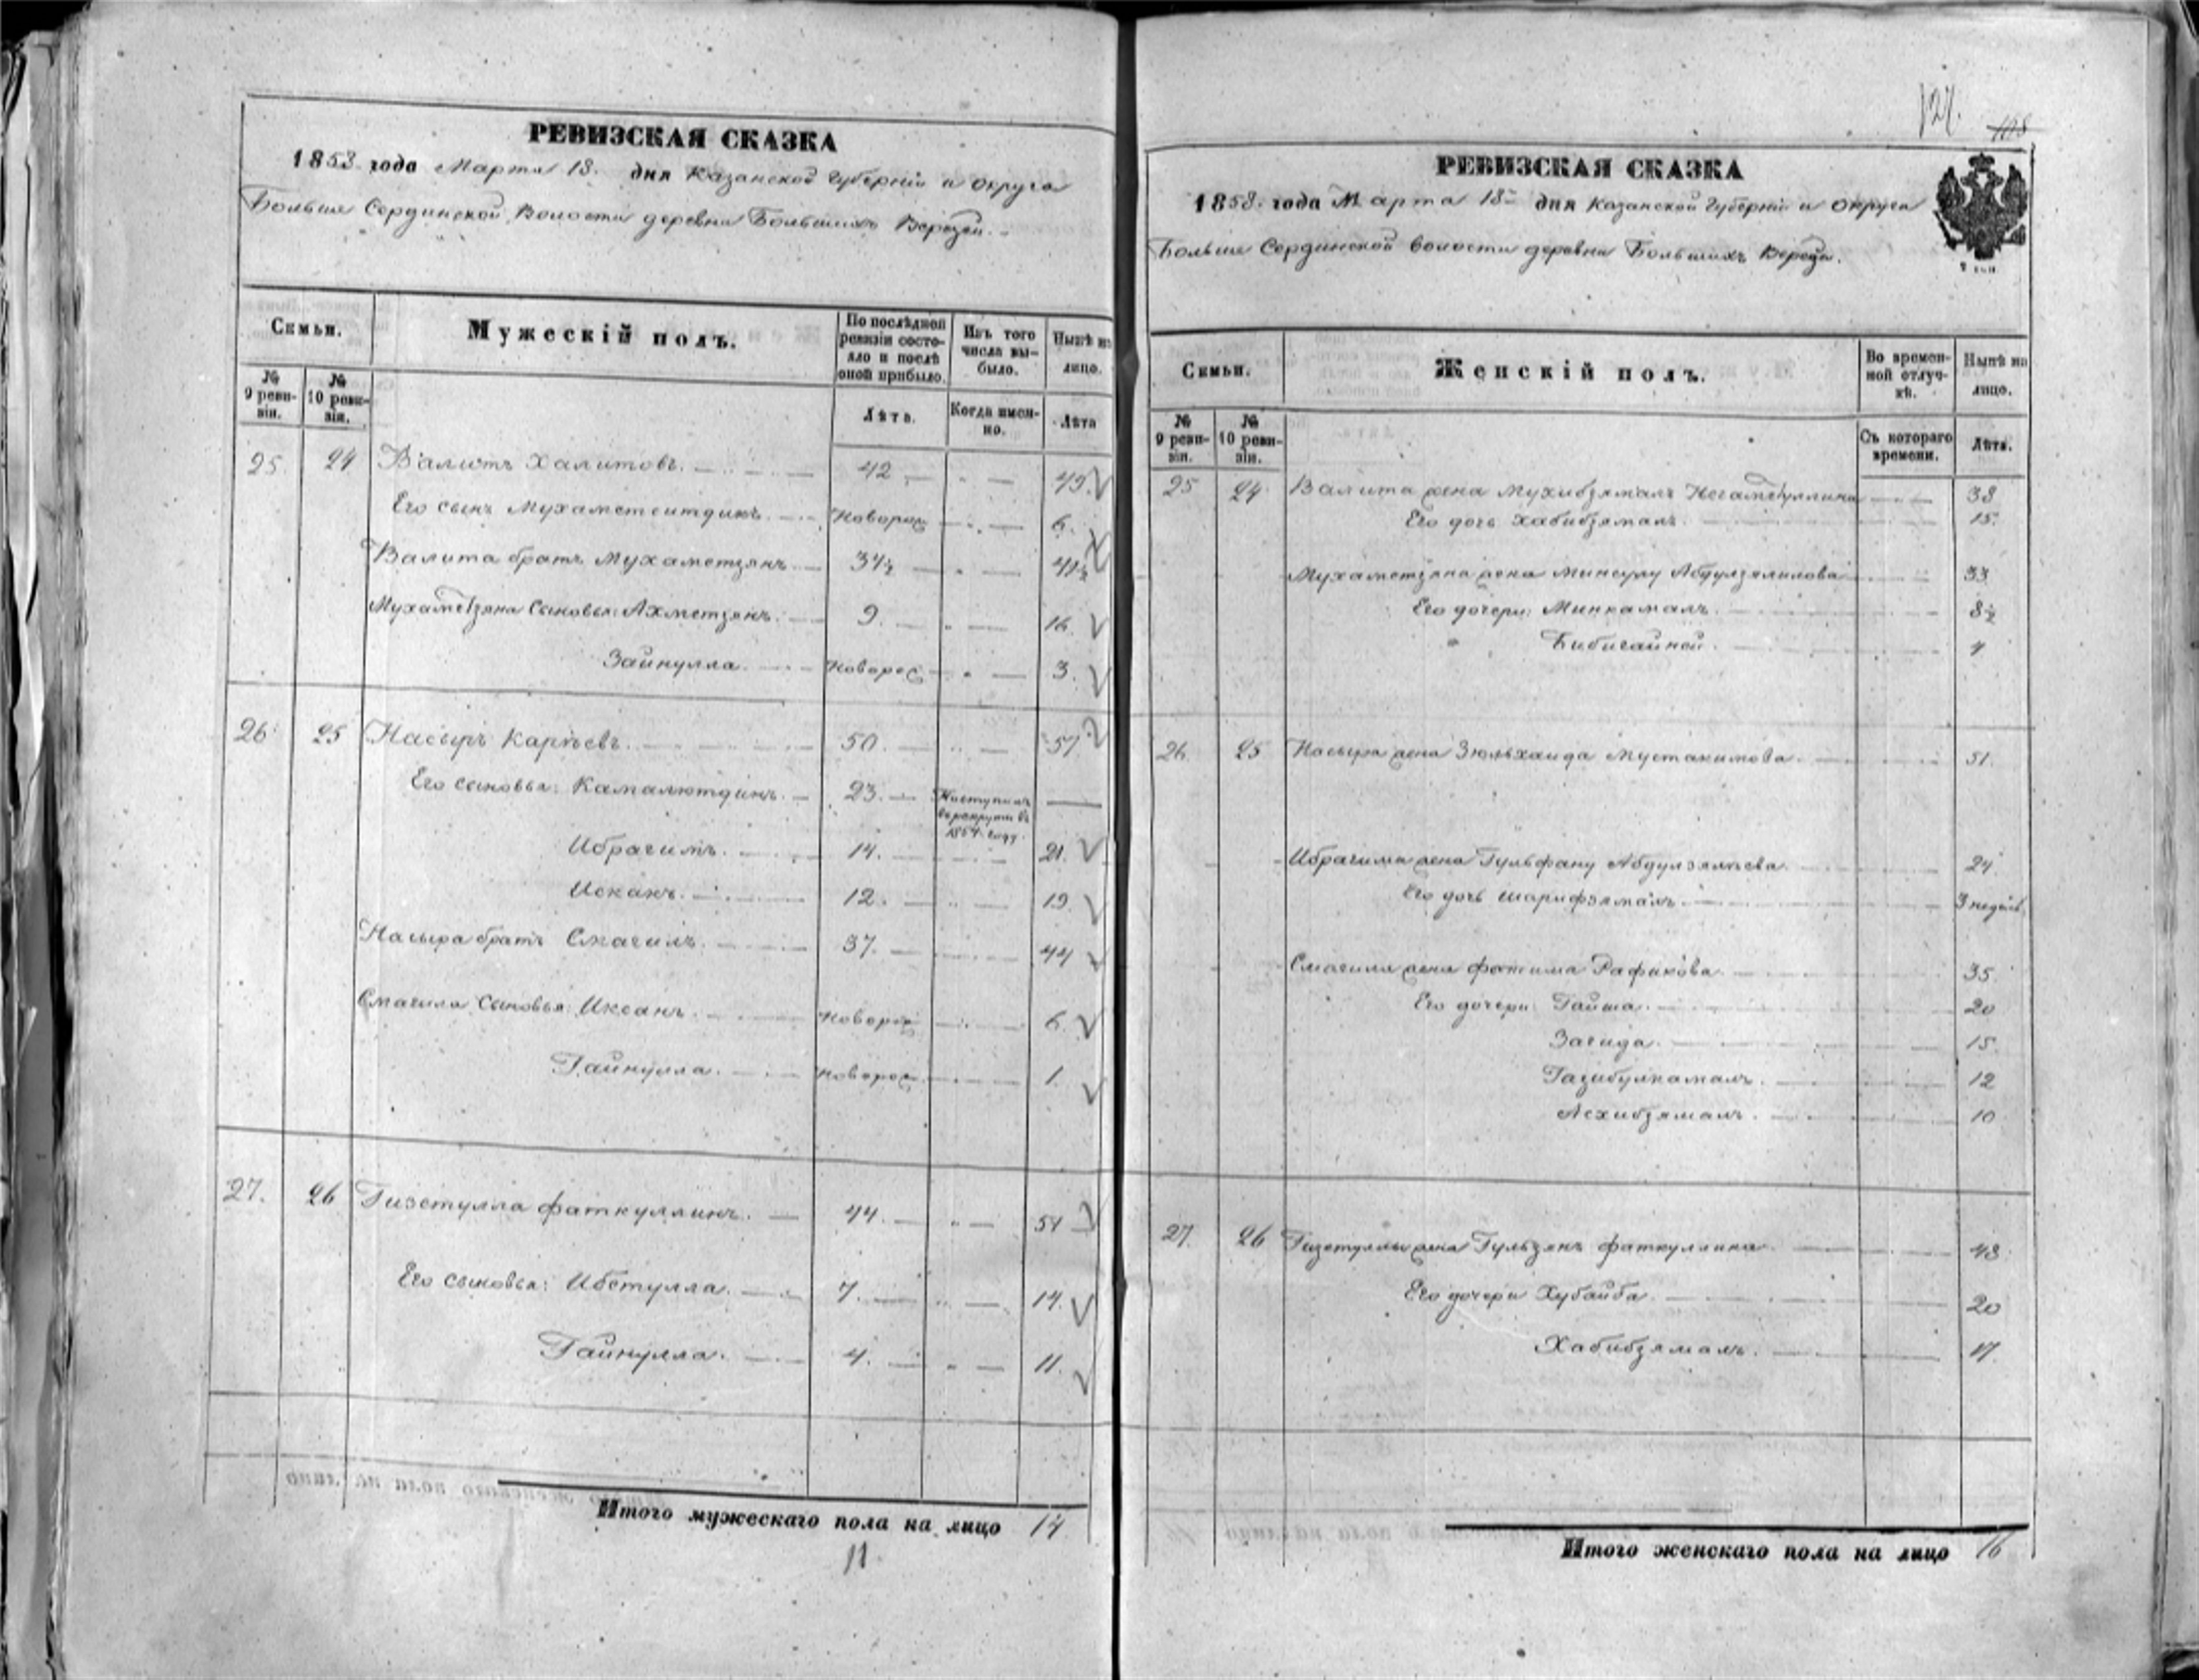 РЕВИЗСКАЯ СКАЗКА
1858 года Марта 18 дня Казанской Губерніи и округа
Больше Сердинской Волости деревни Большихъ Верези.
Семьи.
Мужескій полъ.
По послѣдней ревизіи состояло и послѣ оной прибыло.
Изъ того числа выбыло.
Нынѣ на лицо.
№ 9 ревизіи.
№ 10 ревизіи.
Лѣта.
Когда именно.
Лѣта
25. 24 Валитъ Халитовъ. 42 49.
Его сынъ Мухаметситдикъ. Новорож 6.
Валита братъ Мухаметзянъ 34½ 41½
Мухаметзяна Сыновья: Ахметзянъ. 9. 16.
Зайнулла. Новорож 3.
26 25 Насыръ Карѣевъ. 50. 57
Его сыновья: Камалютдинъ. 23. Поступилъ
въ рекруты въ
1854 году.
Ибрагимъ. 14. 21.
Исхакъ. 12. 19.
Насыра братъ Смагилъ. 37. 44
Смагила Сыновья: Иксанъ. Новорож 6.
Гайнулла. Новорож. 1.
27. 26 Гизетулла Фаткуллинъ. 44. 51
Его сыновья: Ибетулла. 7. 14.
Гайнулла. 4. 11.
Итого мужескаго пола на лицо 14
11.
124.
108
РЕВИЗСКАЯ СКАЗКА
1858 года Марта 18 дня Казанской Губерніи и округа
Больше Сердинской волости деревни Большихъ Верези.
Семьи.
Женскій полъ.
Во временной отлучкѣ.
Нынѣ на лицо.
№ 9 ревизіи.
№ 10 ревизіи.
Съ котораго времени.
Лѣта.
25 24 Валита жена Мухибзямалъ Негаметуллина 38
Его дочь Хабибзямалъ. 15.
Мухаметзяна жена Минсулу Абдулзялилова 33
Его дочери: Минкамалъ. 8½
Бибигайной. 4
26. 25 Насыра жена Зюльхаида Мустакимова. 51.
Ибрагима жена Гульфану Абдулзялѣева. 24
Его дочь Шарифзямалъ. 3 недѣль
Смагила жена Фатима Рафикова. 35
Его дочери: Гайша. 20
Загида. 15.
Газибулкамалъ. 12
Асхибзямалъ. 10
27. 26 Гизетуллы жена Гульзянъ Фаткуллина 48
Его дочери Хубайба. 20
Хабибзямалъ. 17.
Итого женскаго пола на лицо 16